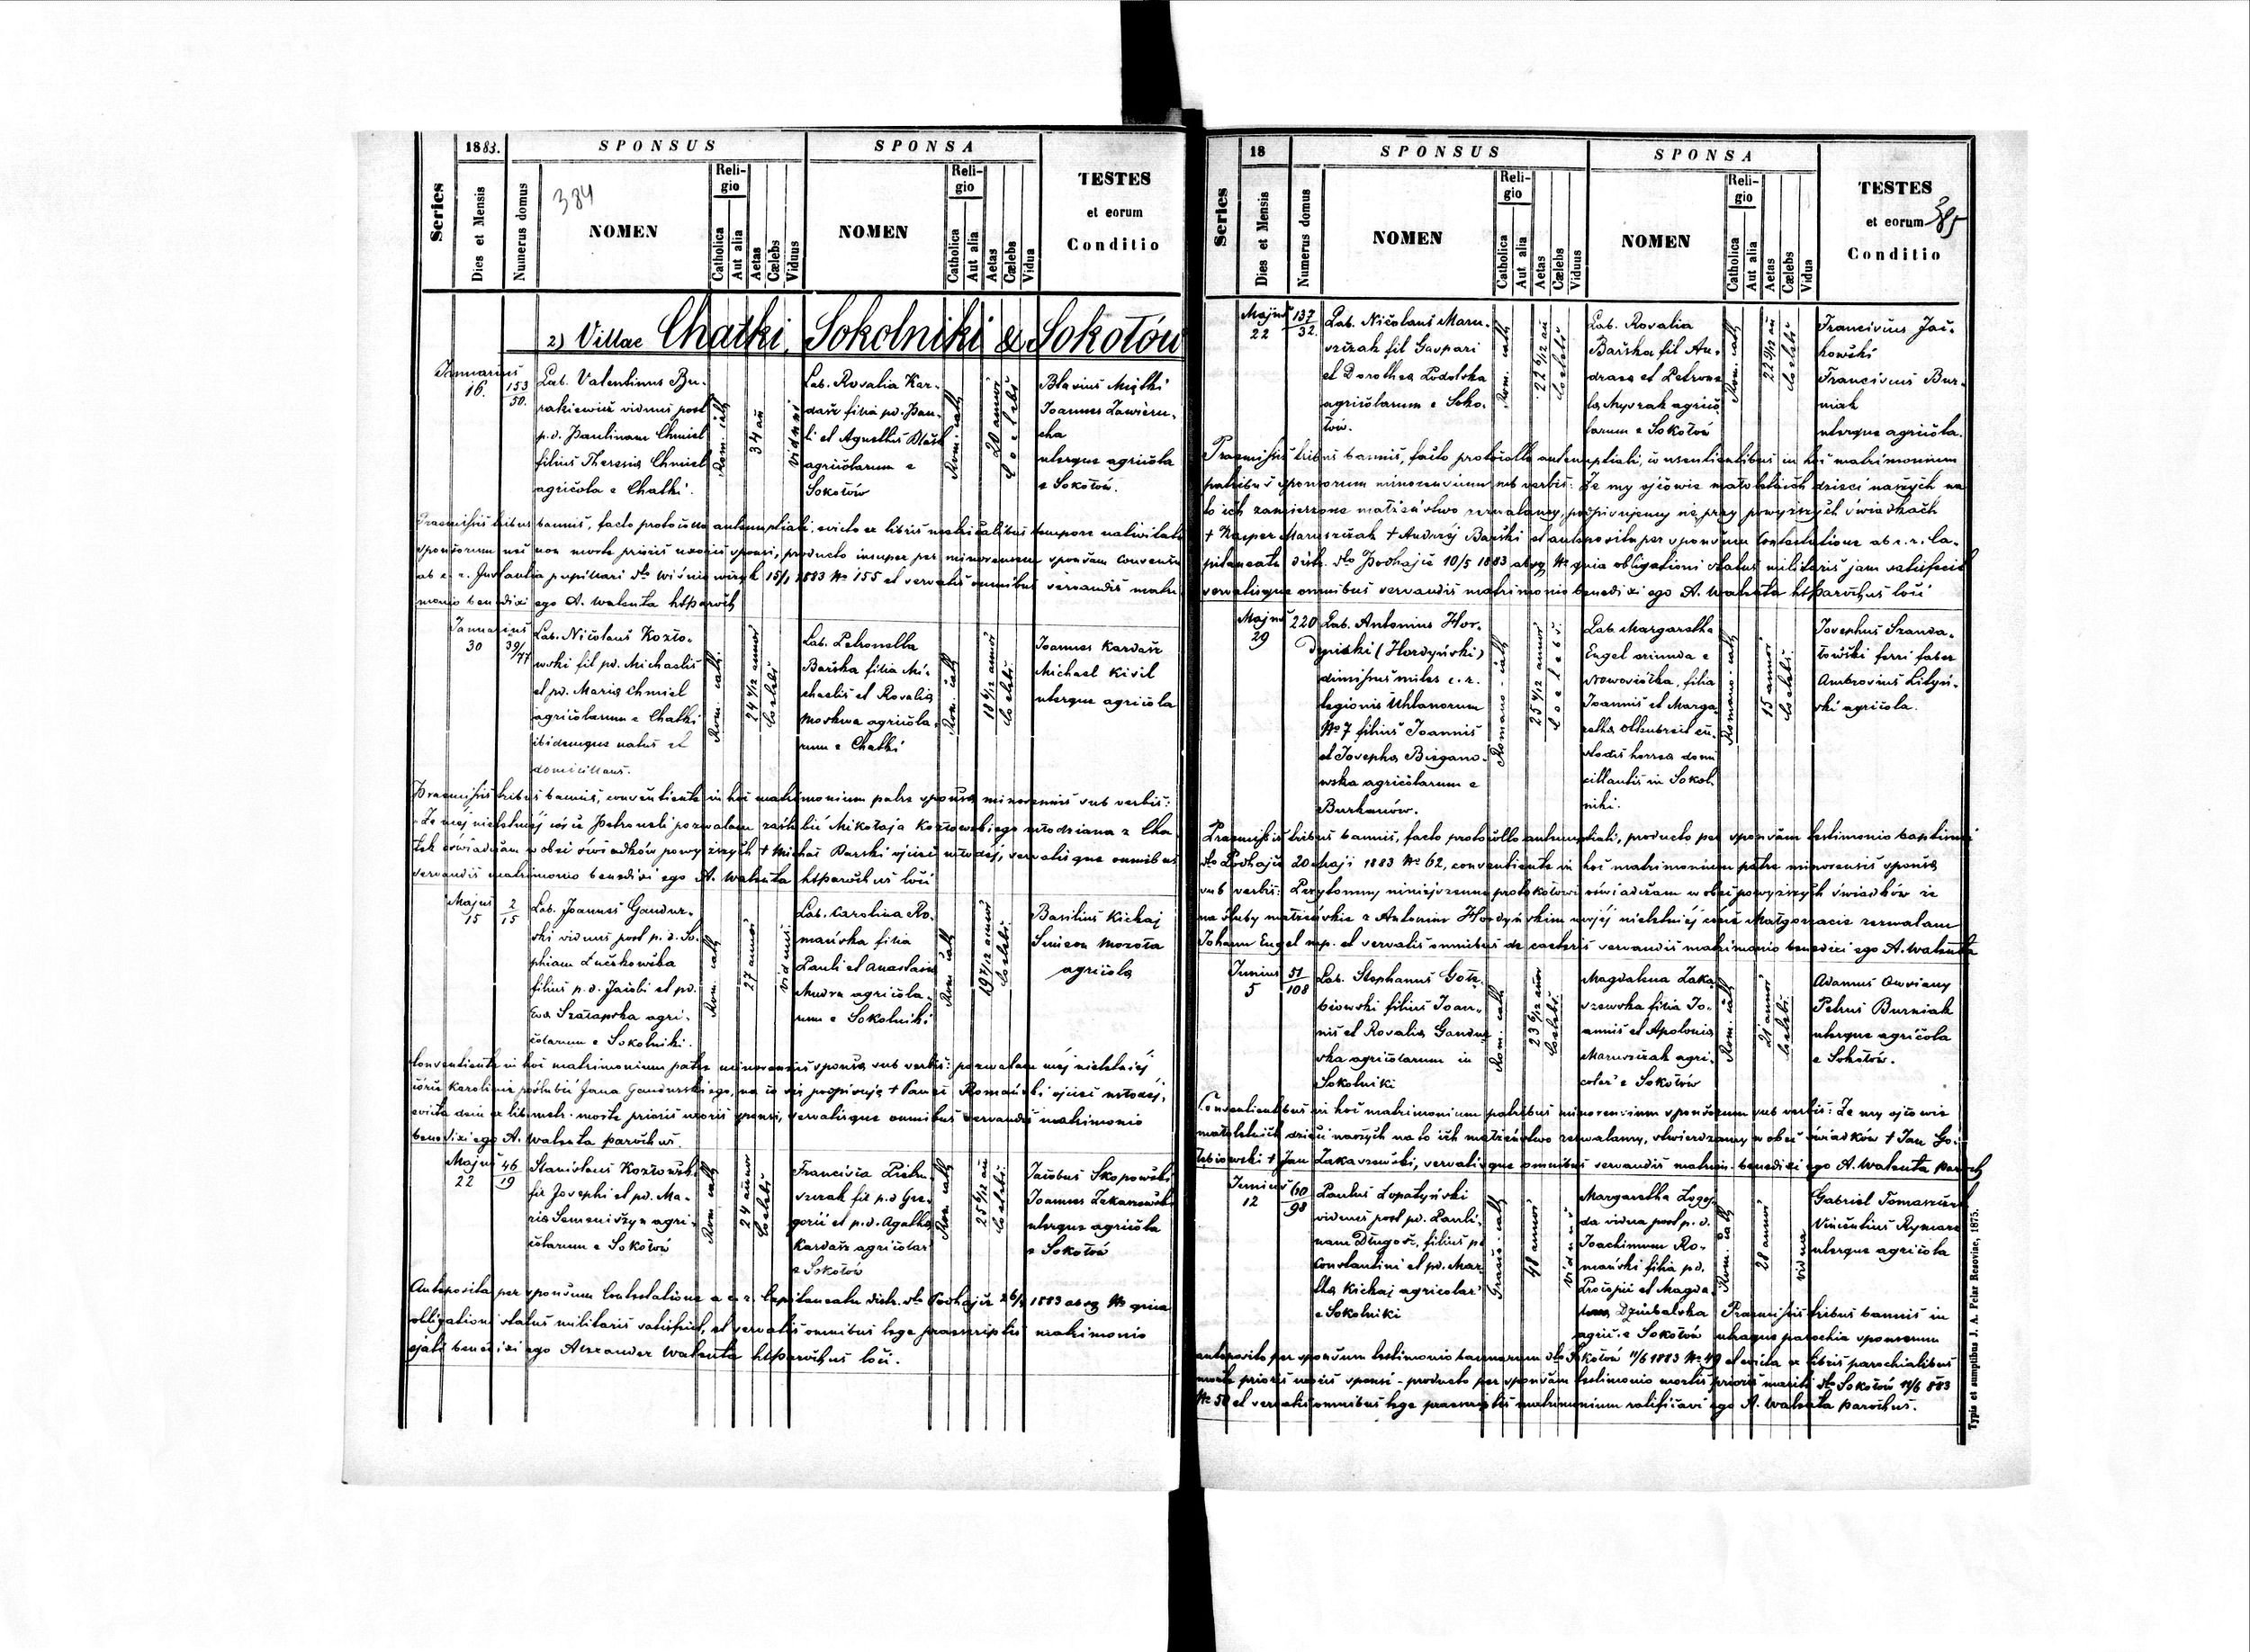 1883.
SPONSUS
SPONSA
TESTES
et eorum
Conditio
Series
Dies et Mensis
Numerus domus
384
NOMEN
Reli-
gio
Catholica
Aut alia
Aetas
Cælebs
Viduus
NOMEN
Reli-
gio
Catholica
Aut alia
Aetas
Cælebs
Vidua
2) Villae Chatki, Sokolniki & Sokołów
Januarius
16.
153
50.
Lab. Valentinus Bu-
rakiewicz viduus post
p.d. Paulinam Chmiel
filius Theresia Chmiel
agricola e Chatki.
Rom. cath
34 an
vidui
Lab. Rosalia Kar-
dasz filia pd. Pau-
li et Agnethis
agricolarum e
Sokołów
Rom. cath
20 annor
Coelebs
Blasius Miątki
Joannes Zawieru-
cha
uterque agricola
e Sokołów.
Praemissis tribus bannis, facto protocollo antenuptiali, evicto ex libris metricalibus tempore nativitatis
sponsorum nec non morte prioris uxoris sponsi, producto insuper per minorennem sponsam consensu
ab c. r. Instantia pupillari dto Wiśniowczyk 15/1 1883 No 155 et servatis omnibus servandis matri-
monio benedixi ego A. Walenta Parochus
Januarius
30
39/77
Lab. Nicolaus Kozło-
wski fil pd. Michaelis
et pd. Maria Chmiel
agricolarum e Chatki
ibidemque natus et
domicilians.
Rom. cath.
24 4/12 annor
Coelebs
Lab. Petronella
Barska filia Mi-
chaelis et Rosalia
Moskwa agricola-
rum e Chatki
Rom. cath
18 6/12 annor
Coelebs
Joannes Kardasz
Michael Kisil
uterque agricola
Praemissis tribus bannis, consentiente in hoc matrimonium patre sponsa minorennis sub verbis:
Że mej nieletniej córce Petroneli pozwalam zaślubić Mikołaja Kozłowskiego młodziana z Cha-
tek oświadczam w obec świadków powyższych + Michał Barski ojciec młodej, servatisque omnibus
servandis matrimonio benedixi ego A. Walenta Parochus loci
Majus
15
2
15
Lab. Joannes Gandur-
ski viduus post p.d. So-
phiam Łuczkowska
filius p.d. Jacobi et pd.
Eva Szarapska agri-
colarum e Sokolniki.
Rom. cath
27 annor
viduus.
Lab. Carolina Ro-
mańska filia
Pauli et Anastasia
Mudra agricola-
rum e Sokolniki
Rom cath
19 7/12 annor
Coelebs
Basilius Kichaj
Simeon Mozoła
agricola
Consentiente in hoc matrimonium patre minorennis sponsa, sub verbis: pozwalam mej nieletniej
córce Karolinie poślubić Jana Gandurskiego, na co się podpisuję + Paweł Romański ojciec młodej,
evicta dein ex lib. metr. morte prioris uxoris sponsi, servatisque omnibus servandis matrimonio
benedixi ego A. Walenta parochus.
Majus
22
46
19
Stanislaus Kozłowski
fil Josephi et pd. Ma-
ria Semeniszyn agri-
colarum e Sokołów
Rom cath
24 annor
Coelebs
Francisca
fil p.d Gre-
gorii et p.d. Agatha
Kardasz agricolar
e Sokołów
Rom. cath
25 6/12 an
Coelebs
Jacobus Skopowski
Joannes
uterque agricola
e Sokołów
Anteposita per sponsum Contestatione a c. r. Capitaneatu distr. dto Podhajce 26/4 1883 absq No quia
obligationi status militaris satisfecit, et servatis omnibus lege praescriptis matrimonio
ejati benedixi ego Alexander Walenta Parochus loci.
18
SPONSUS
SPONSA
TESTES
et eorum
Conditio
385
Series
Dies et Mensis
Numerus domus
NOMEN
Reli-
gio
Catholica
Aut alia
Aetas
Cælebs
Viduus
NOMEN
Reli-
gio
Catholica
Aut alia
Aetas
Cælebs
Vidua
Majus
22
137
32.
Lab. Nicolaus Maru-
szczak fil Gaspari
et Dorothea Podolska
agricolarum e Soko-
łów.
Rom. cath
22 6/12 an
Coelebs
Lab. Rosalia
Barska fil An-
drea et Petrone-
la Mysrak agrico
larum e Sokołów
Rom. cath
22 9/12 an
Coelebs
Franciscus Jac-
kowski
Franciscus Bur-
niak
uterque agricola.
Praemissis tribus bannis, facto protocollo antenuptiali, consentientibus in hoc matrimonium
patribus sponsorum minorennium sub verbis: Że my ojcowie małoletnich dzieci naszych na
to ich zamierzone małżeństwo zezwalamy, podpisujemy się przy powyższych świadkach
+ Kasper Maruszczak + Andrzej Barski et anteposita per sponsum Contestatione ab c. r. Ca-
pitaneatu distr. dto Podhajce 10/5 1883 absq No quia obligationi status militaris jam satisfecit
servatisque omnibus servandis matrimonio benedixi ego A. Walenta Parochus loci
Majus
29
220
Lab. Antonius Hor-
dyniski (Hordyński)
dimissus miles c. r.
legionis Uhlanorum
No 7 filius Joannis
et Josepha Biegano-
wska agricolarum e
Burkanów.
Romano cath
25 4/12 annor
Coelebs.
Lab. Margaretha
Engel oriunda e
Nowosiółka, filia
Joannis et Marga-
retha Oltenbreit cu-
stodis horrea domi
ciliantis in Sokol-
niki.
Romano. cath
15 annor
Coelebs
Josephus Szanda-
łowski ferri faber
Ambrosius Lityń-
ski agricola.
Praemissis tribus bannis, facto protocollo antenuptiali, producto per sponsam testimonio baptismi
dto Podhajce 20 Maji 1883 No 62, consentiente in hoc matrimonium patre minorennis sponsa
sub verbis: Przytomny niniejszemu protokołowi oświadczam w obec powyższych świadków że
na śluby małżeńskie z Antonim Hordyńskim mojej nieletniej córce Małgorzacie zezwalam
Johann Engel mp. et servatis omnibus de caeteris servandis matrimonio benedixi ego A. Walenta
Junius
5
51
108
Lab. Stephanus Gołę-
biowski filius Joan-
nis et Rosalia Gandur
ska agricolarum in
Sokolniki
Rom. cath
23 6/12 anor
Coelebs
Magdalena Zaka-
szewska filia Jo-
annis et Apolonia
Maruszczak agri-
color e Sokołów
Rom. cath
21 annor
Coelebs.
Adamus Owsiany
Petrus Burniak
uterque agricola
e Sokołów.
Consentientibus in hoc matrimonium patribus minorennium sponsorum sub verbis: Że my ojcowie
małoletnich dzieci naszych na to ich małżeństwo zezwalamy, stwierdzamy w obec świadków + Jan Go-
łębiowski + Jan Zakaszewski, servatisque omnibus servandis matrim. benedixi ego A. Walenta Paroch
Junius
12
60
98
Paulus Łopatyński
viduus post pd. Pauli-
nam Długosz, filius pd
Constantini et pd. Mar-
tha Kichaj agricolar
e Sokolniki
Graec. cath
48 annor
viduus
Margaretha Łogoj-
da vidua post p.d.
Joachimum Ro-
mański filia pd.
Procopii et Magda-
lena Dziubalska
agric. e Sokołów
Rom. cath
28 annor
vidua
Gabriel Tomaszczuk
Vincentius Rymarz
uterque agricola
Praemissis tribus bannis in
utraque parochia sponsorum
anteposito per sponsum testimonio bannorum dto Sokołów 11/6 1883 No 49 et evicta ex libris parochialibus
morte prioris uxoris sponsi - producto per sponsam testimonio mortis prioris mariti dto Sokołów 11/6 883
No 50 et servatis omnibus lege praescriptis matrimonium ratificavi ego A. Walenta Parochus.
Typis et sumptibus J. A. Pelar Resoviae, 1875.